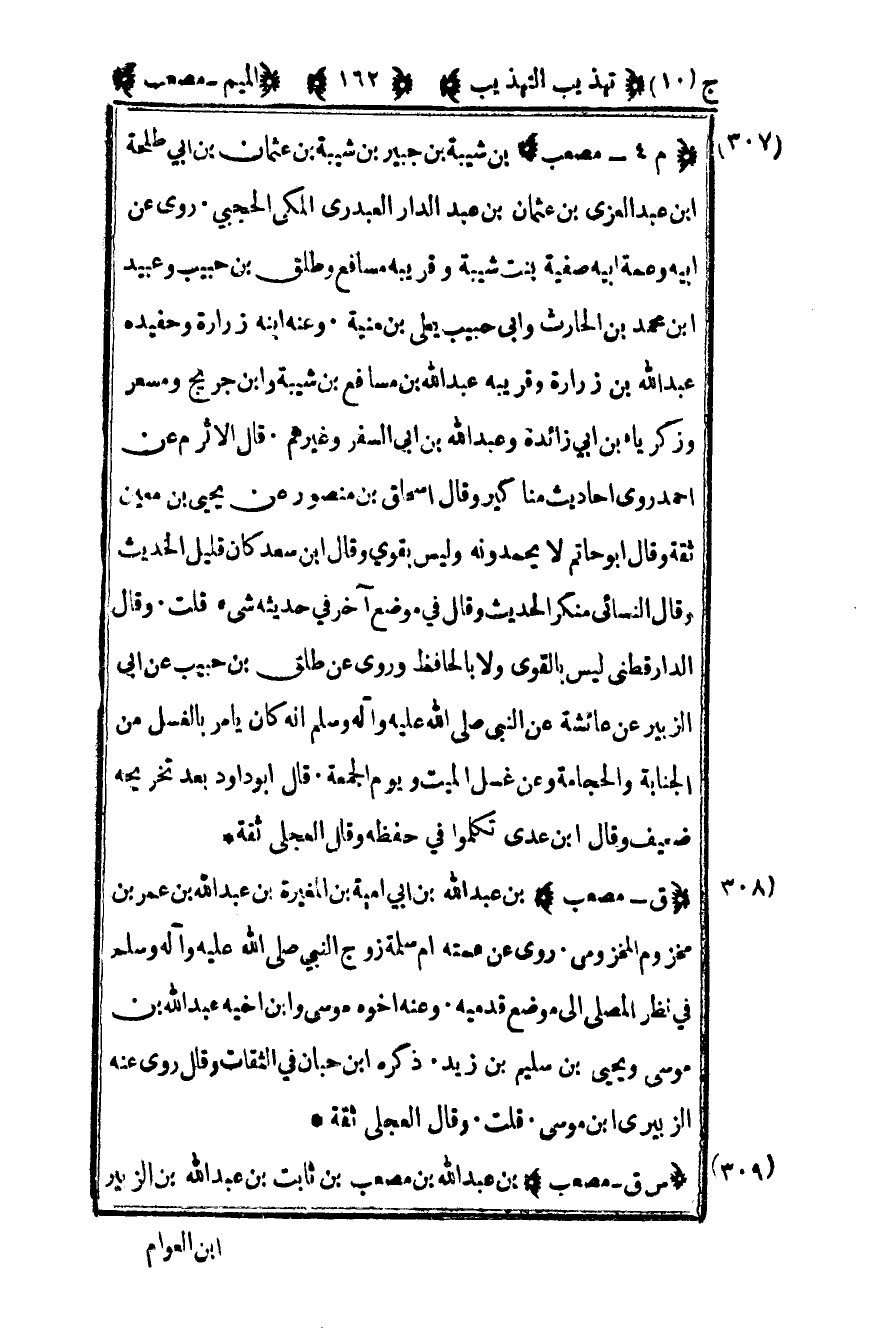 ج (١٠) ﴿ تهذيب التهذيب ﴾ ﴿ ١٦٢ ﴾ ﴿ الميم - مصعب ﴾
(٣٠٧) ﴿ م ٤ - مصعب ﴾ بن شيبة بن جبير بن شيبة بن عثمان بن ابي طلحة
ابن عبد العزى بن عثمان بن عبد الدار العبدرى المكى الحجبي · روى عن
ابيه وعمة ابيه صفية بنت شيبة و قريبه مسافع وطلق بن حبيب و عبيد
ابن محمد بن الحارث وابى حبيب يعلى بن منية · وعنه ابنه زرارة وحفيده
عبدالله بن زرارة وقريبه عبدالله بن مسافع بن شيبة وابن جريج ومسعر
وزكرياء بن ابي زائدة وعبدالله بن ابى السفر وغيرهم · قال الاثرم عن
احمد روى احاديث مناكير وقال اسحاق بن منصور عن يحيى بن معين
ثقة وقال ابو حاتم لا يحمدونه وليس بقوي وقال ابن سعد كان قليل الحديث
وقال النسائى منكر الحديث وقال في موضع آخر في حديثه شىء قلت · وقال
الدارقطنى ليس بالقوى ولا بالحافظ وروى عن طلق بن حبيب عن ابى
الزبير عن عائشة عن النبى صلى الله عليه وآله وسلم انه كان يامر بالغسل من
الجنابة والحجامة وعن غسل الميت ويوم الجمعة · قال ابو داود بعد تخريجه
ضعيف وقال ابن عدى تكلموا في حفظه وقال العجلى ثقة *
(٣٠٨) ﴿ ق - مصعب ﴾ بن عبدالله بن ابي امية بن المغيرة بن عبدالله بن عمر بن
مخزوم المخزومى · روى عن عمته ام سلمة زوج النبي صلى الله عليه وآله وسلم
في نظر المصلى الى موضع قدميه · وعنه اخوه موسى وابن اخيه عبدالله بن
موسى ويحيى بن سليم بن زيد · ذكره ابن حبان في الثقات وقال روى عنه
الزبيرى ابن موسى · قلت · وقال العجلى ثقة *
(٣٠٩) ﴿ س ق - مصعب ﴾ بن عبدالله بن مصعب بن ثابت بن عبدالله بن الزبير
ابن العوام